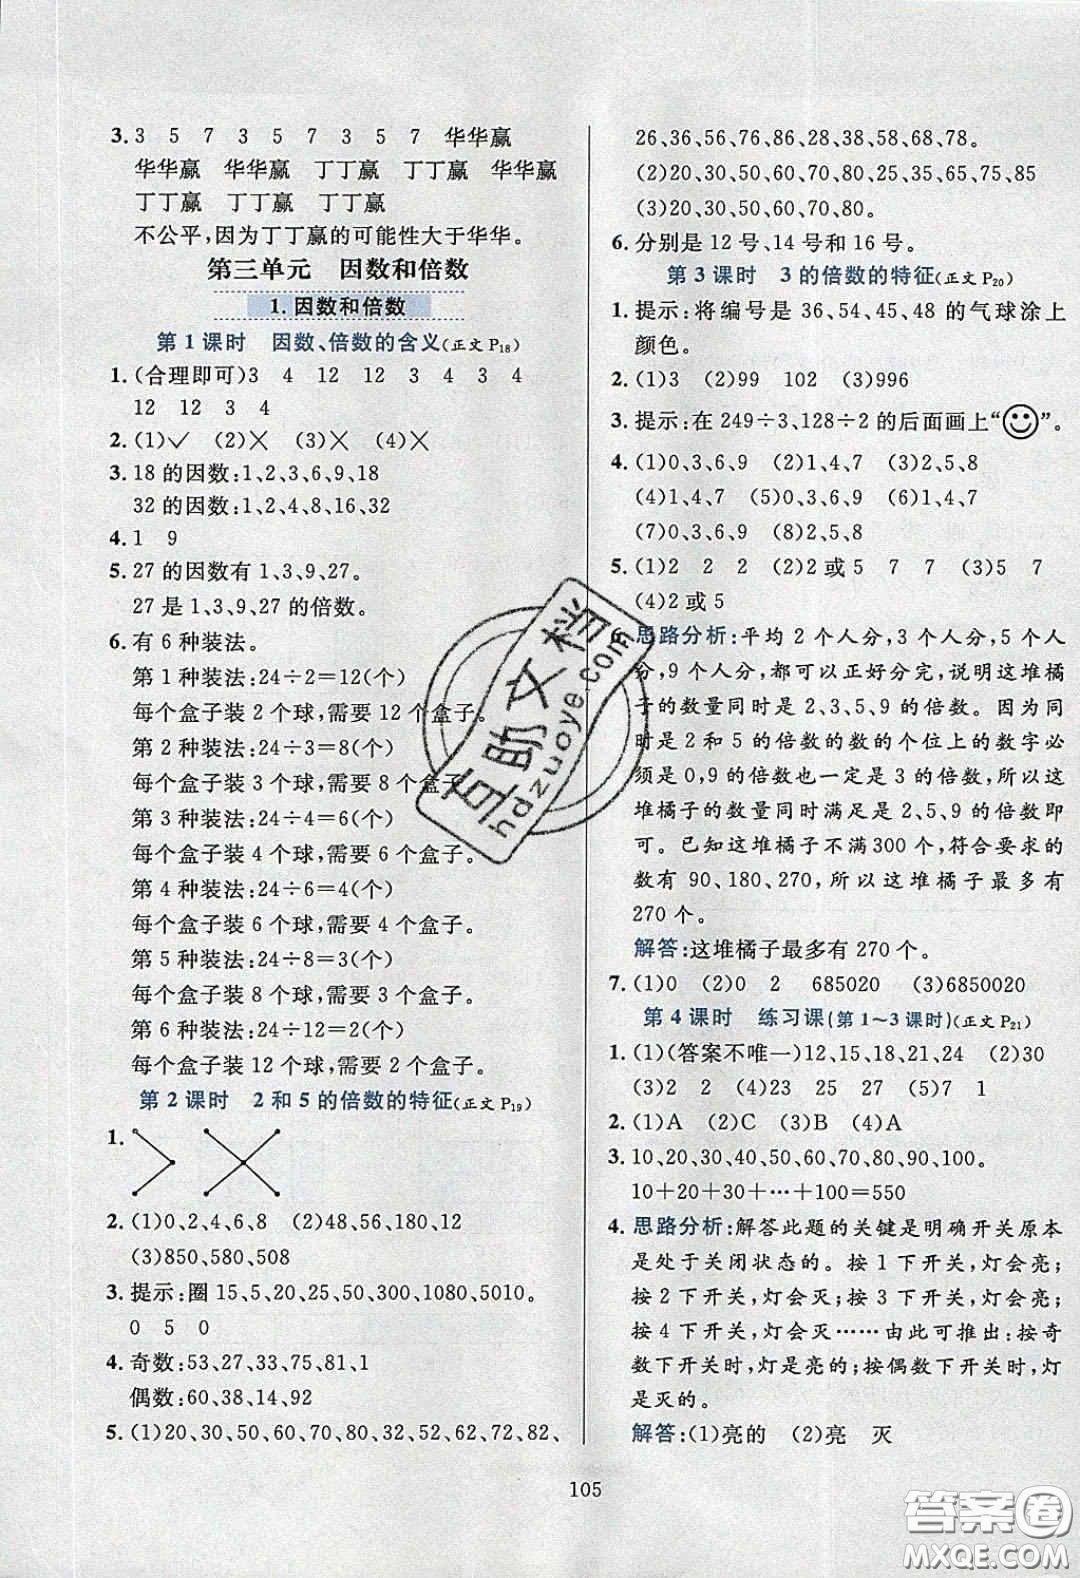 3. 3 5 7 3 5 7 3 5 7 华华赢
华华赢 华华赢 丁丁赢 丁丁赢 华华赢
丁丁赢 丁丁赢 丁丁赢
不公平,因为丁丁赢的可能性大于华华。
第三单元 因数和倍数
1. 因数和倍数
第1课时 因数、倍数的含义(正文P18)
1. (合理即可)3 4 12 12 3 4 3 4
12 12 3 4
2. (1)✓ (2)╳ (3)╳ (4)╳
3. 18的因数:1、2、3、6、9、18
32的因数:1、2、4、8、16、32
4. 1 9
5. 27的因数有1、3、9、27。
27是1、3、9、27的倍数。
6. 有6种装法。
第1种装法:24÷2=12(个)
每个盒子装2个球,需要12个盒子。
第2种装法:24÷3=8(个)
每个盒子装3个球,需要8个盒子。
第3种装法:24÷4=6(个)
每个盒子装4个球,需要6个盒子。
第4种装法:24÷6=4(个)
每个盒子装6个球,需要4个盒子。
第5种装法:24÷8=3(个)
每个盒子装8个球,需要3个盒子。
第6种装法:24÷12=2(个)
每个盒子装12个球,需要2个盒子。
第2课时 2和5的倍数的特征(正文P19)
1.
2. (1)0、2、4、6、8 (2)48、56、180、12
(3)850、580、508
3. 提示:圈15、5、20、25、50、300、1080、5010。
0 5 0
4. 奇数:53、27、33、75、81、1
偶数:60、38、14、92
5. (1)20、30、50、60、70、80、32、52、62、72、82、
26、36、56、76、86、28、38、58、68、78。
(2)20、30、50、60、70、80、25、35、65、75、85
(3)20、30、50、60、70、80。
6. 分别是12号、14号和16号。
第3课时 3的倍数的特征(正文P20)
1. 提示:将编号是36、54、45、48的气球涂上
颜色。
2. (1)3 (2)99 102 (3)996
3. 提示:在249÷3、128÷2的后面画上“☺”。
4. (1)0、3、6、9 (2)1、4、7 (3)2、5、8
(4)1、4、7 (5)0、3、6、9 (6)1、4、7
(7)0、3、6、9 (8)2、5、8
5. (1)2 2 2 (2)2或5 7 7 (3)5 7
(4)2或5
6. 思路分析:平均2个人分,3个人分,5个人
分,9个人分,都可以正好分完,说明这堆橘
子的数量同时是2、3、5、9的倍数。因为同
时是2和5的倍数的数的个位上的数字必
须是0,9的倍数也一定是3的倍数,所以这
堆橘子的数量同时满足是2、5、9的倍数即
可。已知这堆橘子不满300个,符合要求的
数有90、180、270,所以这堆橘子最多有
270个。
解答:这堆橘子最多有270个。
7. (1)0 (2)0 2 685020 (3)6850020
第4课时 练习课(第1~3课时)(正文P21)
1. (1)(答案不唯一)12、15、18、21、24 (2)30
(3)2 2 (4)23 25 27 (5)7 1
2. (1)A (2)C (3)B (4)A
3. 10、20、30、40、50、60、70、80、90、100。
10+20+30+⋯+100=550
4. 思路分析:解答此题的关键是明确开关原本
是处于关闭状态的。按1下开关,灯会亮;
按2下开关,灯会灭;按3下开关,灯会亮;
按4下开关,灯会灭……由此可推出:按奇
数下开关时,灯是亮的;按偶数下开关时,灯
是灭的。
解答:(1)亮的 (2)亮 灭
105
百助文档
hdzuoye.com
答案圈
MXQE.COM